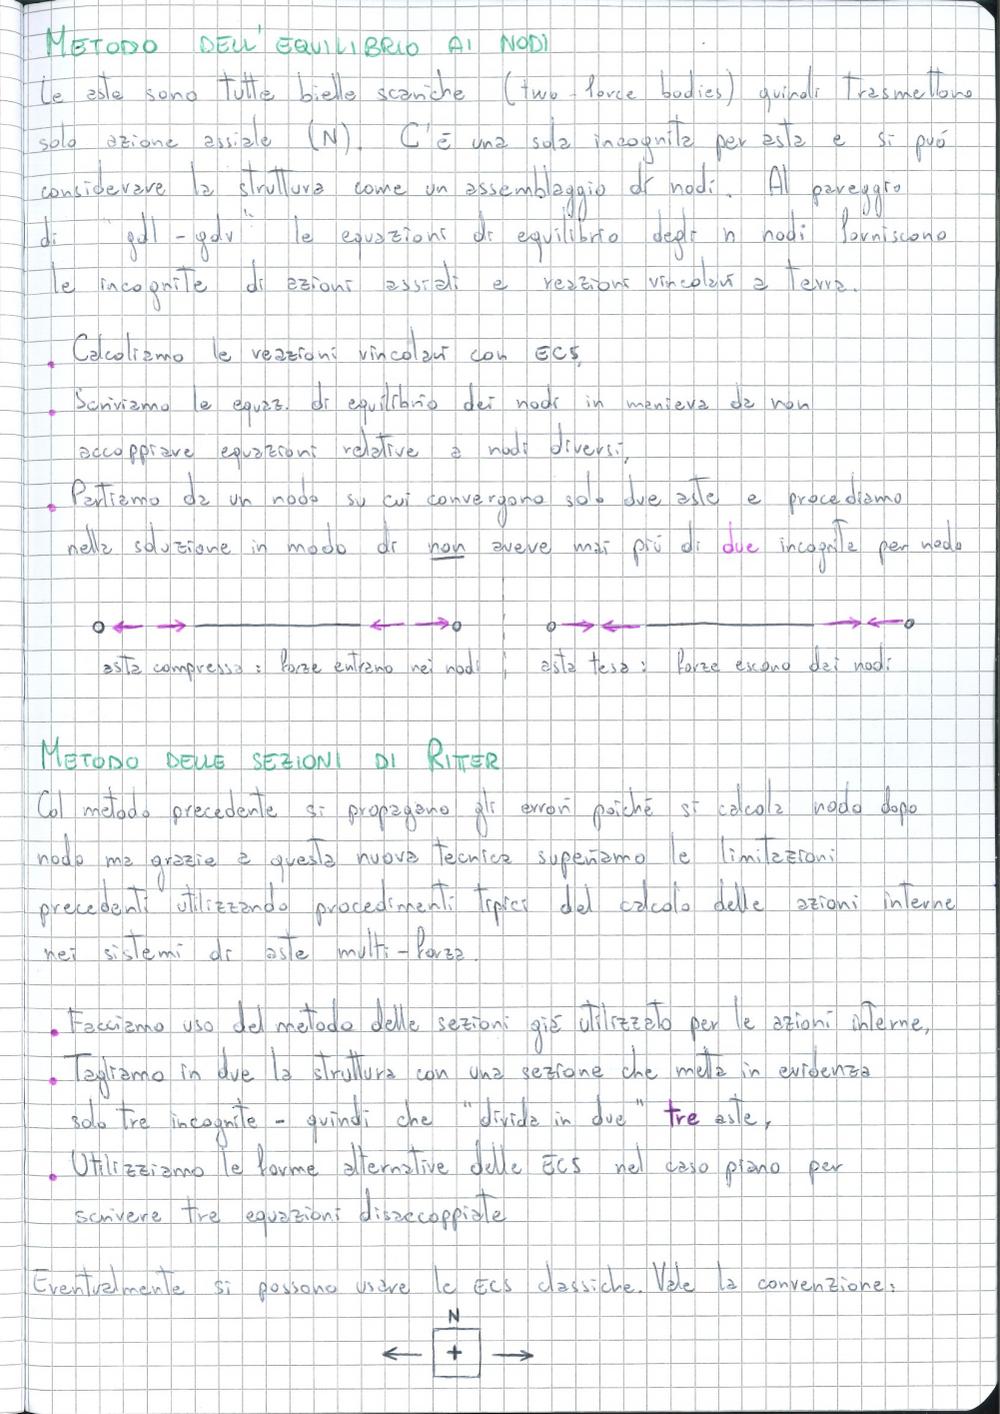 METODO DELL'EQUILIBRIO AI NODI
Le aste sono tutte bielle scariche (two-force bodies) quindi trasmettono
solo azione assiale (N). C'è una sola incognita per asta e si può
considerare la struttura come un assemblaggio di nodi. Al pareggio
di "gdl - gdv" le equazioni di equilibrio degli n nodi forniscono
le incognite di azioni assiali e reazioni vincolari a terra.
• Calcoliamo le reazioni vincolari con ECS,
• Scriviamo le equaz. di equilibrio dei nodi in maniera da non
accoppiare equazioni relative a nodi diversi,
• Partiamo da un nodo su cui convergono solo due aste e procediamo
nella soluzione in modo di non avere mai più di due incognite per nodo
asta compressa: forze entrano nei nodi ; asta tesa: forze escono dai nodi
METODO DELLE SEZIONI DI RITTER
Col metodo precedente si propagano gli errori poiché si calcola nodo dopo
nodo ma grazie a questa nuova tecnica superiamo le limitazioni
precedenti utilizzando procedimenti tipici del calcolo delle azioni interne
nei sistemi di aste multi-forza.
• Facciamo uso del metodo delle sezioni già utilizzato per le azioni interne,
• Tagliamo in due la struttura con una sezione che metta in evidenza
solo tre incognite - quindi che "divida in due" tre aste,
• Utilizziamo le forme alternative delle ECS nel caso piano per
scrivere tre equazioni disaccoppiate
Eventualmente si possono usare le ECS classiche. Vale la convenzione:
N
+